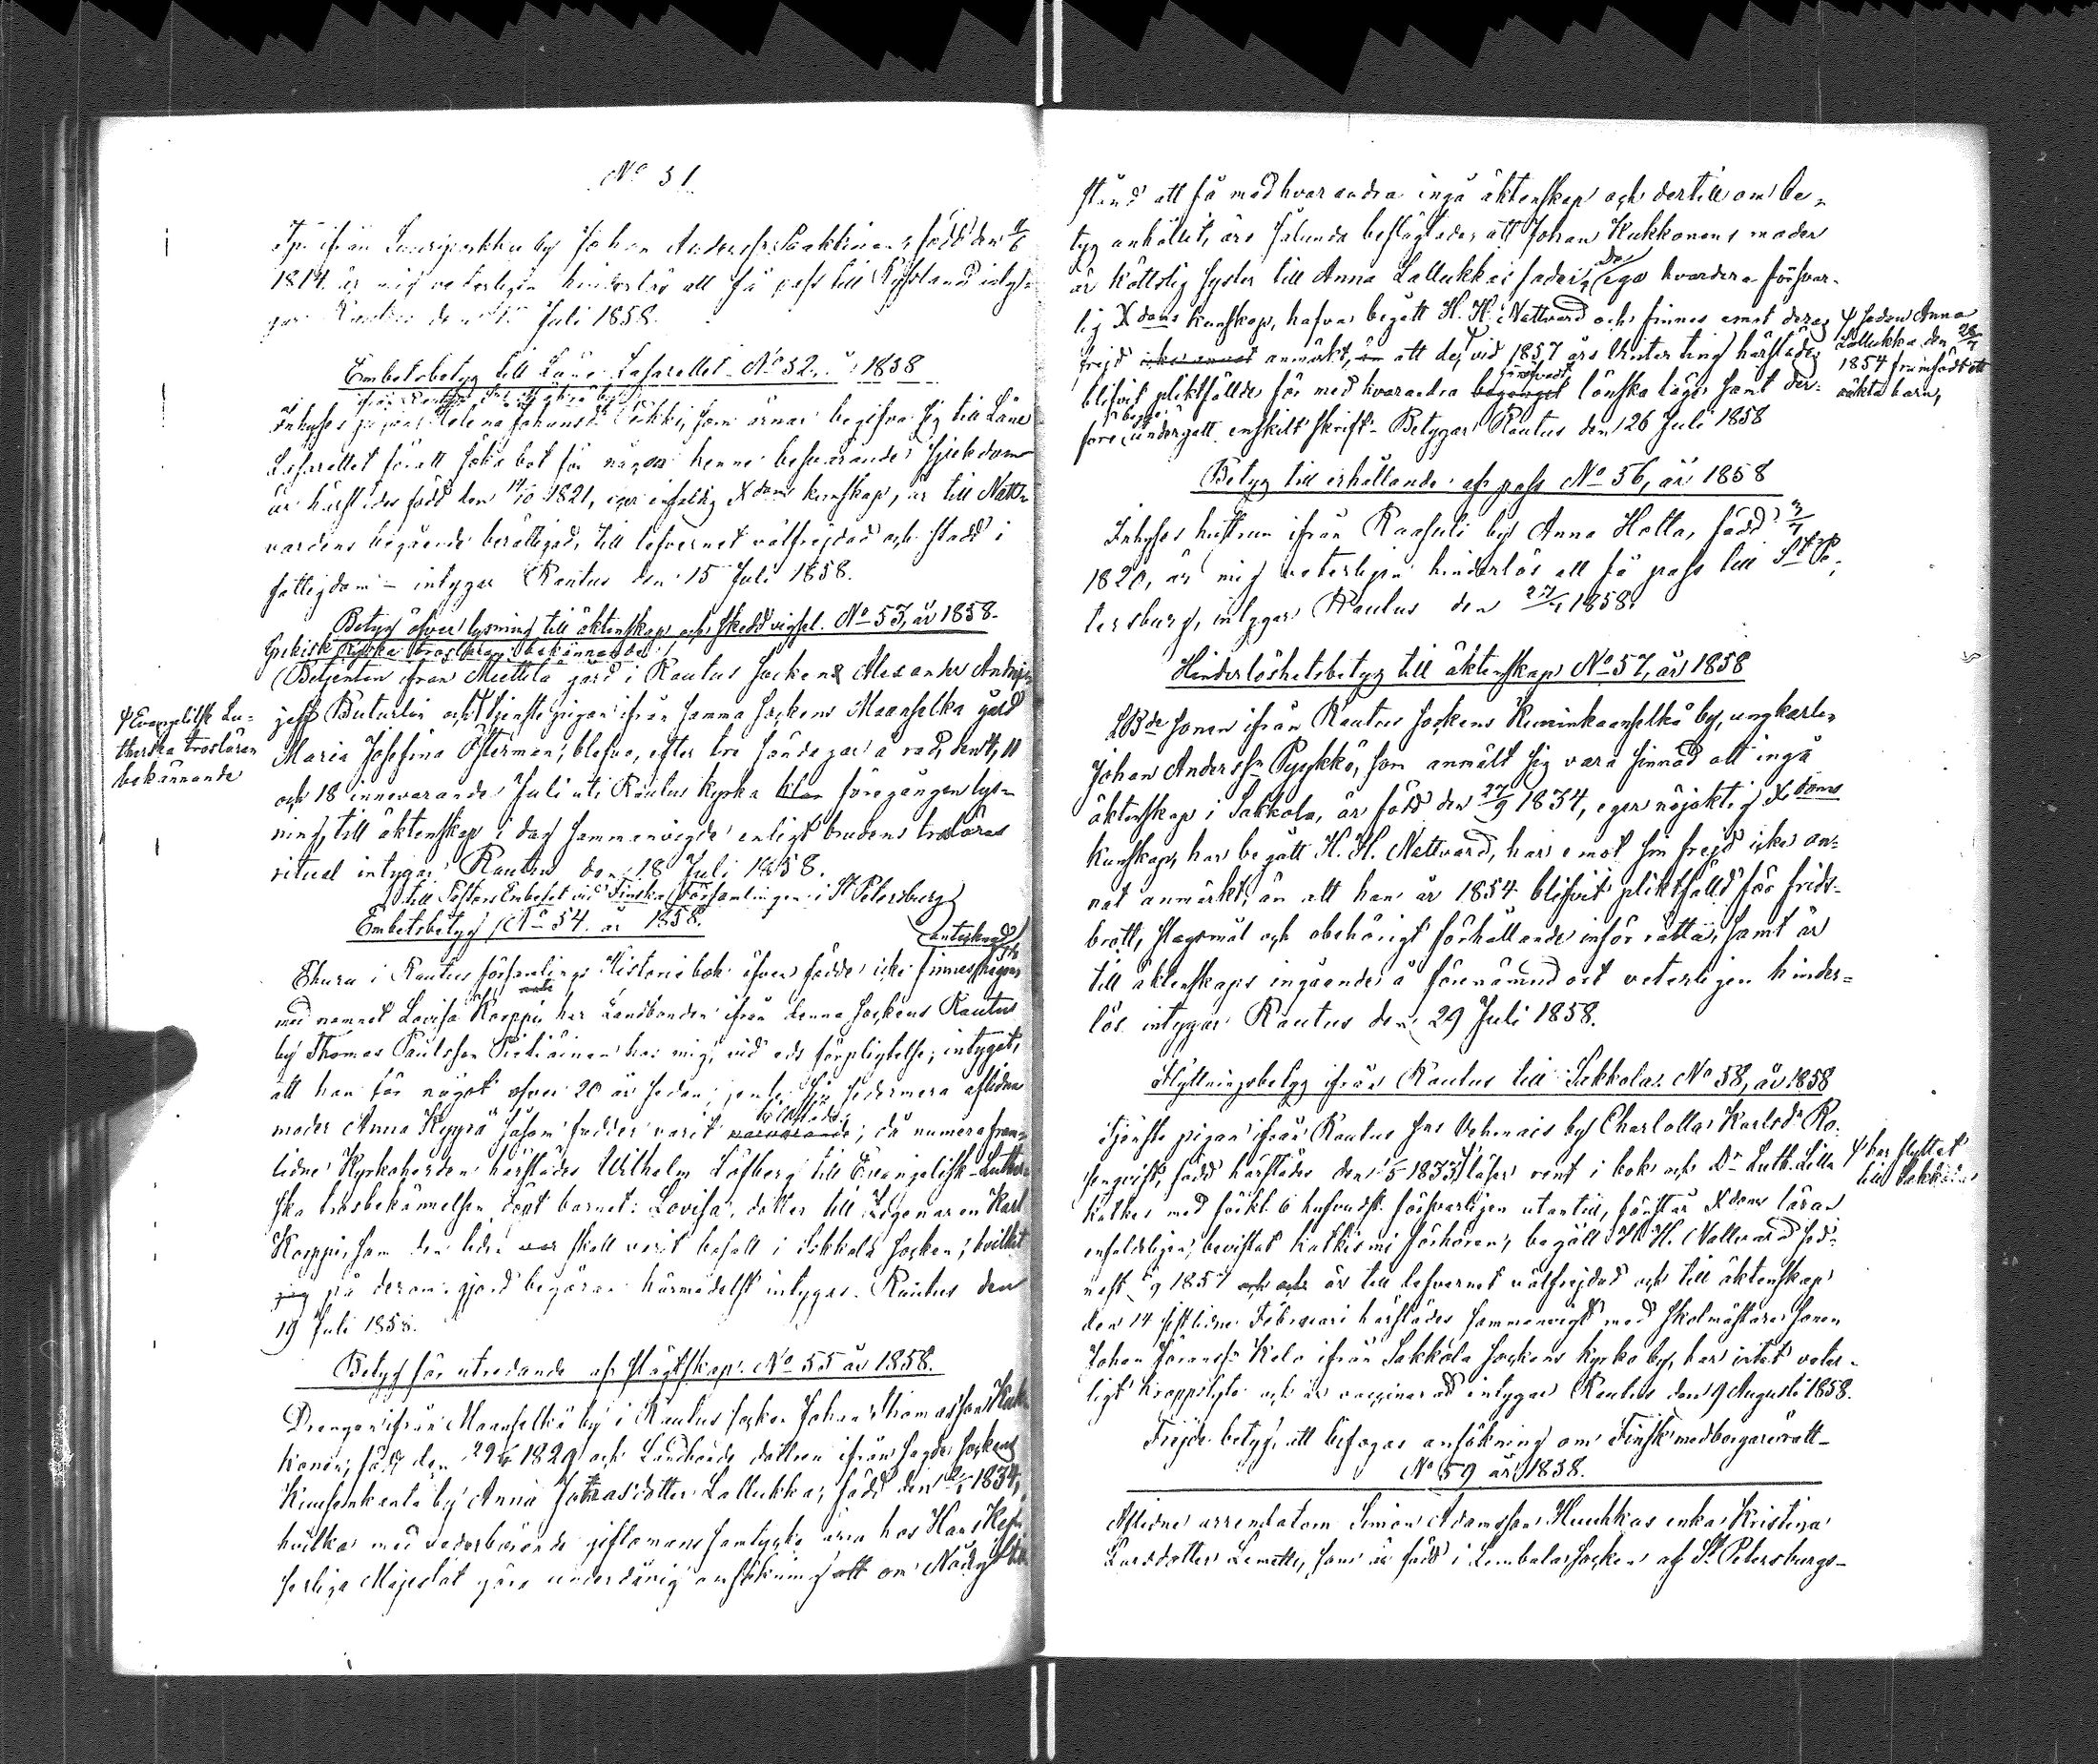 No 51
Jps ifrån Lauripirkku by Johan Andersson Paakkinen, född den 4/6
1814 är mig veterligen hinderlös att få pass till Ryssland intyg-
gar Rautus den 15 Juli 1858.
Embetsbetyg till Läne Lasarettet No 52. år 1858
Inhyses pigan Helena Johansdr Pukki, som ärnar begifva sig till Läne
Lasarettet för att söka bot för någon henne besvärande sjukdom
är härstädes född den 14/10 1821, eger enfaldig Xdoms kunskap, är till Natt-
vardens begående berättigad, till lefvernet välfrejdad och stadd i
fattigdom - intygar Rautus den 15 Juli 1858.
Betyg öfver lysning till äktenskap och skedd vigsel. No 53, år 1858.
Grekisk Ryska trosläran bekännande
Betjenten ifrån Miettilä gård i Rautus Socken Alexander Andrje-
jeff Buturlin och tjenstepigan ifrån samma sockens Maanselkä gård
ψ Evangeliske Lu-
therska trosläran
bekännande
Maria Josefina Österman, blefvo, efter tre söndagar å rad, den 4, 11
och 18 innevarande Juli uti Rautus kyrka blef föregången lys-
ning till äktenskap i dag sammanvigde enligt brudens troläras
ritual intygar Rautus den 18 Juli 1858.
till Pastors Embetet vid Finska Församlingen i St Petersburg
Embetsbetyg No 54. år 1858.
antecknad
Ehuru i Rautus församlings Historiebok öfver födde icke finnes
med namnet Lovisa Korppi, har Landbonden ifrån denna Sockens Rautus
by Thomas Paulsson Pietiäinen hos mig, vid eds förpligtelse, intygat,
att han för något öfver 20 år sedan, jemte sin sedermera aflidna
moder Anna Kyyrä såsom fadder varit närvarande; då numera fram-
lidne Kyrkoherden härstädes Wilhelm Löfberg till Evangelisk-Luther-
ska trosbekännelsen döpt barnet: Lovisa, dotter till Legonaren Karl
Korppi, som den tiden var skall varit bosatt i Sakkola Socken; hvilket
jag på derom gjord begäran härmedelst intygar. Rautus den
19 Juli 1858.
Betyg för utredande af slägtskap. No 55 år 1858.
Drängen ifrån Maanselkä by i Rautus Socken Johan Thomasson Kuk-
konen, född den 29/ 1829 och Landbonde dottren ifrån sagde Sockens
Kuusenkanta by Anna dotter Lallukka, född den 1834,
hvilka med vederbörande giftomans samtycke ärna hos Hans Kej-
serliga Majestät göra underdånig ansökning att om Nådigt till-
stånd att få med hvarandra ingå äktenskap och dertill om be-
tyg anhållit, äro sålunda beslägtade, att Johan Kukkonens moder
är köttslig syster till Anna Lallukkas fader, de ega hvardera försvar-
lig Xdoms kunskap, hafva begått H. H. Nattvard och finnes emot deras
frejd icke annat anmärkt, än att de, vid 1857 års Winter ting härstädes
blifvit pliktfällde för med hvarandra begånget lönska läge, samt der-
före undergått enskilt skrift - Betygar Rautus den 26 Juli 1858
ψ sedan Anna
Lallukka den 28/7
1854 framfödt ett
oäkta barn,
Betyg till erhållande af pass No 56, år 1858
Inhyses hustrun ifrån Raasuli by Anna Hotta, född 3/7
1820, är mig veterligen hinderlös att få pass till St Pe-
tersburg, intygar Rautus den 27/7 1858.
Hinderlöshetsbetyg till äktenskap No 57, år 1858
LBde sonen ifrån Rautus sockens Kuninkaanselkä by, ungkarlen
Johan Anderssn Pyykkö, som anmält sig vara sinnad att ingå
äktenskap i Sakkola, är född den 27/9 1834, eger nöjaktig Xdoms
kunskap, har begått H. H. Nattvard, har emot sin frejd icke an-
nat anmärkt, än att han år 1854 blifvit pliktfälld för frids-
brott, slagsmål och obehörigt förhållande inför rätta, samt är
till äktenskaps ingående å förenämnd ort veterligen hinder-
lös intygar Rautus den 29 Juli 1858.
Flyttningsbetyg ifrån Rautus till Sakkola. No 58, år 1858
Tjenste pigan ifrån Rautus Sns Vehmais by Charlotta Karlsdr Ro-
senqvist, född härstädes den 1833, läser rent i bok och Dr Luth. Lilla
ψ har flyttat
till Sakkola
Katkes med förkl. 6 hufvudst. försvarligen utantill, förstår Xdoms läran
enfaldeligen, bevistat katkismi förhören, begått H. H. Nattvard sed-
nast 1857 och är till lefvernet välfrejdad och till äktenskap
den 14 sistlidne Februari härstädes sammanvigd med Skolmästare sonen
Johan Göranssn Kelo ifrån Sakkola Sockens Kyrko by, har intet veter-
ligt kroppslyte och är vaccinerad intygar Rautus den 9 Augusti 1858.
Frejde betyg, att bifogas ansökning om Finsk medborgarerätt -
No 59 år 1858.
Aflidne arrendatorn Simon Adamsson Huuhkas enka Kristina
Larsdotter Lemetti, som är född i Lembala Socken af St Petersburgs-